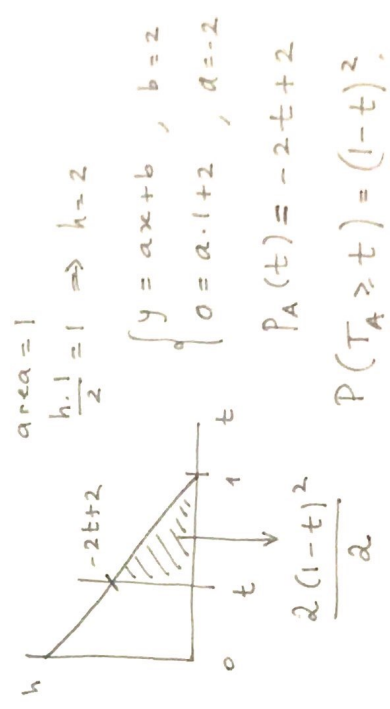 area = 1
h·1/2 = 1 => h=2
y = ax+b , b=2
0 = a·1+2 , a=-2
P_A(t) = -2t+2
P(T_A ≥ t) = (1-t)^2.
h
-2t+2
0
t
1
t
2(1-t)^2/2